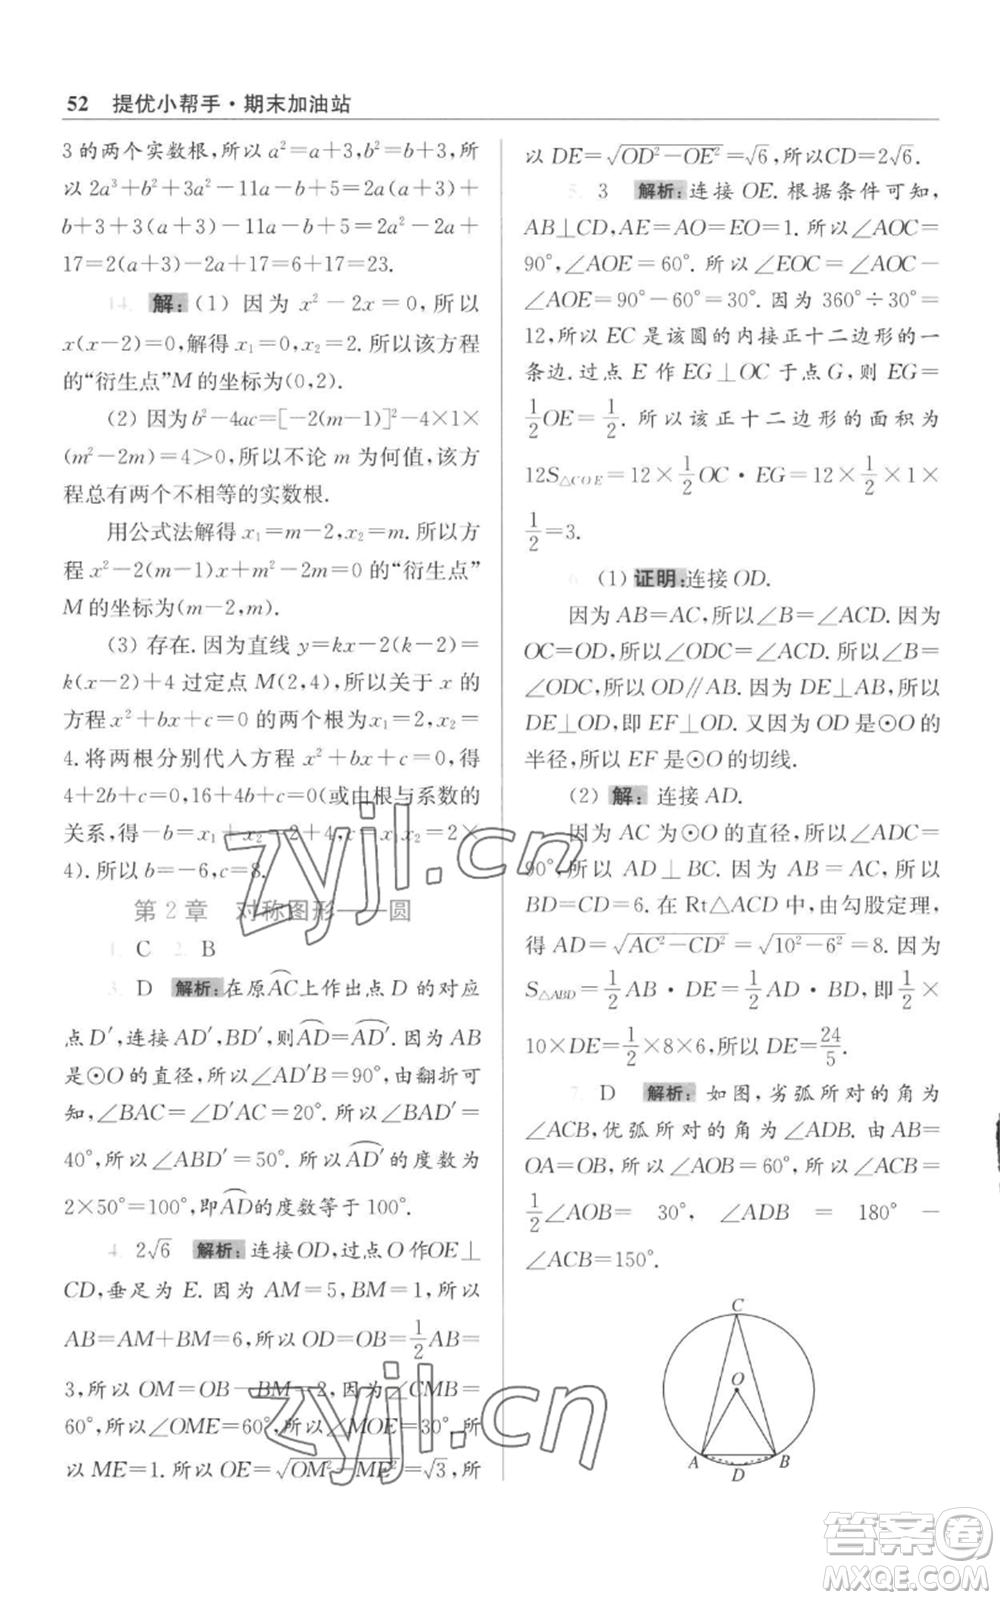 52 提优小帮手·期末加油站
3 的两个实数根,所以 a²=a+3,b²=b+3,所
以 2a³+b²+3a²-11a-b+5=2a(a+3)+
b+3+3(a+3)-11a-b+5=2a²-2a+
17=2(a+3)-2a+17=6+17=23.
14. 解:(1) 因为 x²-2x=0,所以
x(x-2)=0,解得 x₁=0,x₂=2. 所以该方程
的“衍生点”M 的坐标为(0,2).
(2) 因为b²-4ac=[-2(m-1)]²-4×1×
(m²-2m)=4>0,所以不论 m 为何值,该方
程总有两个不相等的实数根.
用公式法解得 x₁=m-2,x₂=m. 所以方
程 x²-2(m-1)x+m²-2m=0 的“衍生点”
M 的坐标为(m-2,m).
(3) 存在. 因为直线 y=kx-2(k-2)=
k(x-2)+4 过定点 M(2,4),所以关于 x 的
方程 x²+bx+c=0 的两个根为x₁=2,x₂=
4. 将两根分别代入方程 x²+bx+c=0,得
4+2b+c=0,16+4b+c=0(或由根与系数的
关系,得-b=x₁+x₂=2+4,c=x₁x₂=2×
4). 所以 b=-6,c=8.
第 2 章 对称图形——圆
1. C 2. B
3. D 解析:在原⌒AC上作出点 D 的对应
点 D′,连接 AD′,BD′,则⌒AD=⌒AD′. 因为 AB
是⊙O 的直径,所以∠AD′B=90°,由翻折可
知,∠BAC=∠D′AC=20°. 所以∠BAD′=
40°,所以∠ABD′=50°. 所以⌒AD′的度数为
2×50°=100°,即⌒AD的度数等于 100°.
4. 2√6 解析:连接OD,过点O作OE⊥
CD,垂足为 E. 因为 AM=5,BM=1,所以
AB=AM+BM=6,所以 OD=OB=1/2AB=
3,所以 OM=OB-BM=2. 因为∠CMB=
60°,所以∠OME=60°,所以∠MOE=30°,所
以 ME=1. 所以 OE=√(OM²-ME²)=√3,所
以 DE=√(OD²-OE²)=√6,所以CD=2√6.
5. 3 解析:连接 OE. 根据条件可知,
AB⊥CD,AE=AO=EO=1. 所以∠AOC=
90°,∠AOE=60°. 所以∠EOC=∠AOC-
∠AOE=90°-60°=30°. 因为 360°÷30°=
12,所以 EC 是该圆的内接正十二边形的一
条边. 过点 E 作 EG⊥OC 于点 G,则 EG=
1/2OE=1/2. 所以该正十二边形的面积为
12S△COE=12×1/2OC·EG=12×1/2×1×
1/2=3.
6. (1) 证明:连接 OD.
因为 AB=AC,所以∠B=∠ACD. 因为
OC=OD,所以∠ODC=∠ACD. 所以∠B=
∠ODC,所以 OD∥AB. 因为 DE⊥AB,所以
DE⊥OD,即 EF⊥OD. 又因为 OD 是⊙O 的
半径,所以 EF 是⊙O 的切线.
(2) 解:连接 AD.
因为 AC 为⊙O 的直径,所以∠ADC=
90°. 所以 AD⊥BC. 因为 AB=AC,所以
BD=CD=6. 在 Rt△ACD 中,由勾股定理,
得 AD=√(AC²-CD²)=√(10²-6²)=8. 因为
S△ABD=1/2AB·DE=1/2AD·BD,即1/2×
10×DE=1/2×8×6,所以 DE=24/5.
7. D 解析:如图,劣弧所对的角为
∠ACB,优弧所对的角为∠ADB. 由AB=
OA=OB,所以∠AOB=60°,所以∠ACB=
1/2∠AOB= 30°, ∠ADB = 180° -
∠ACB=150°.
C
O
A D B
zyjl.cn
zyjl.cn
答案卷
MXQE.COM